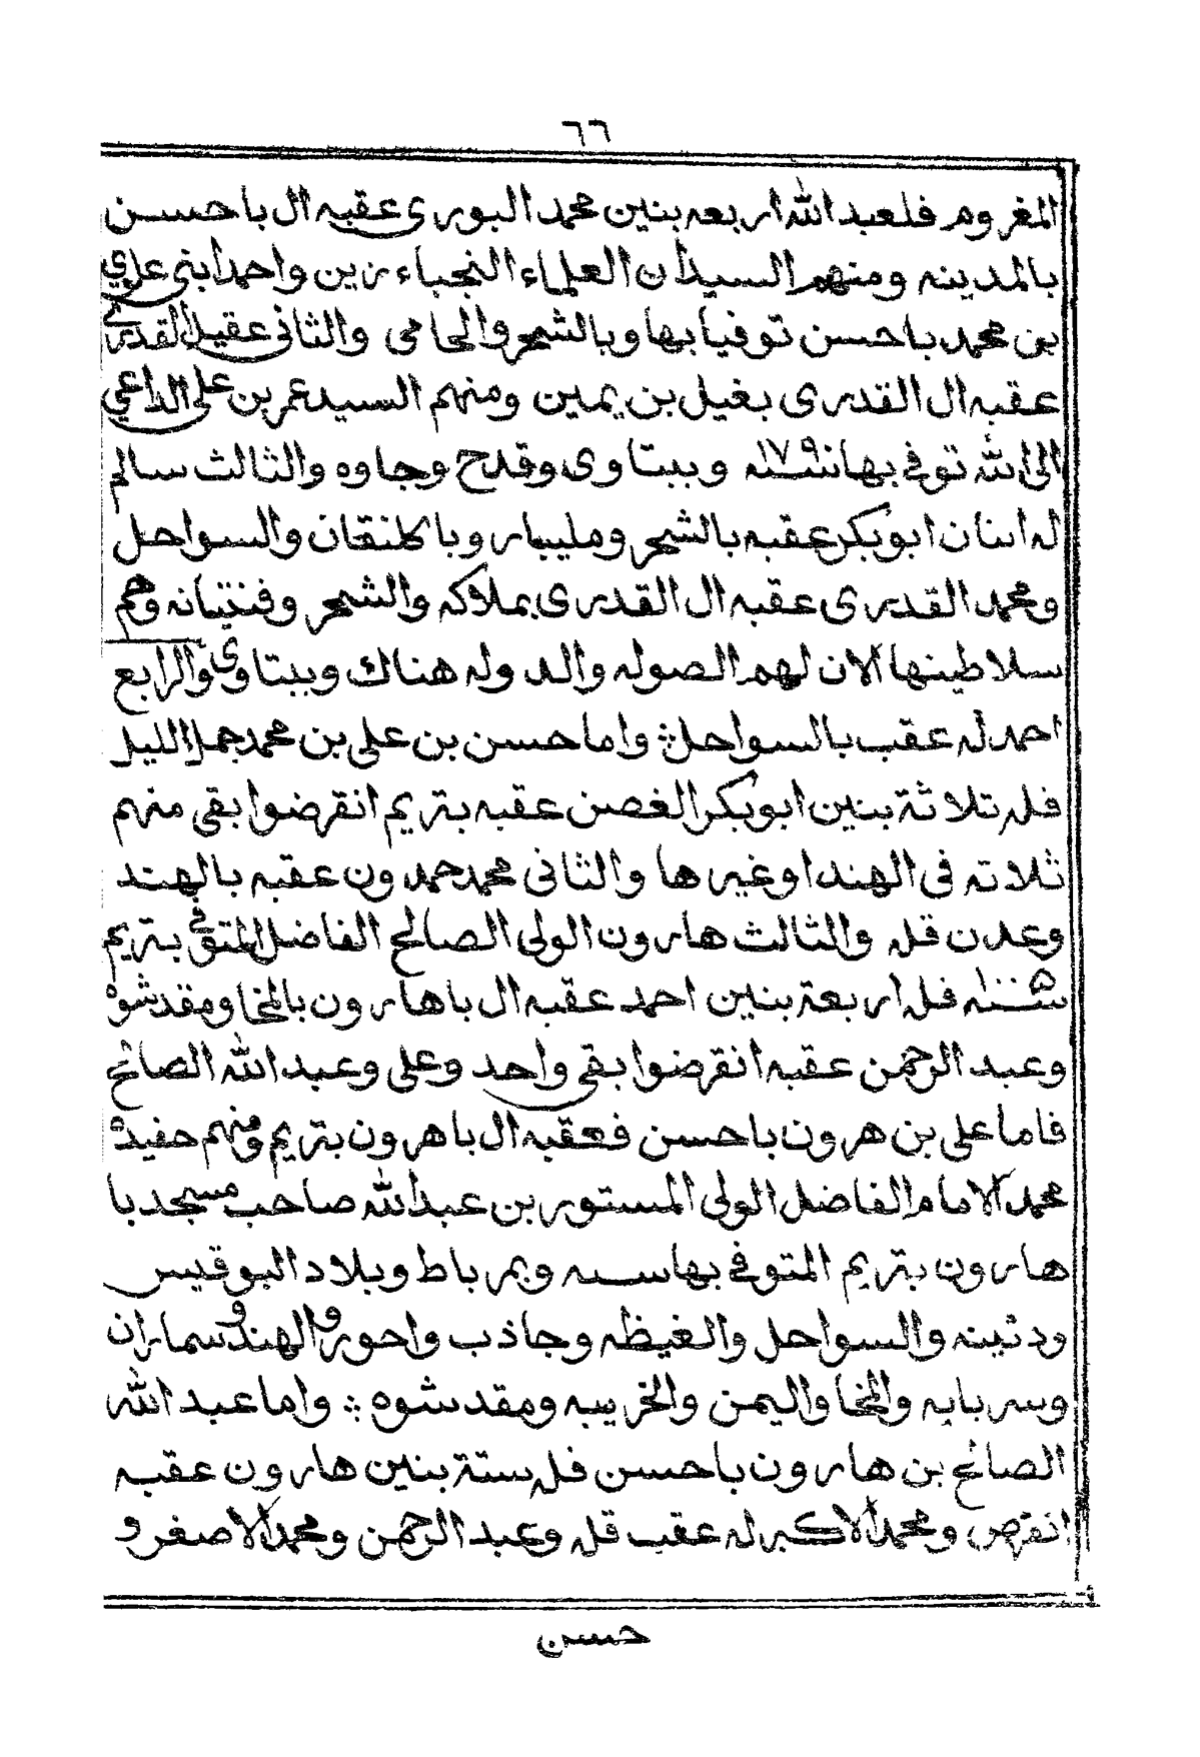 ٦٦
المغروم فلعبد الله اربعه بنين محمد البوري عقبه ال باحسن
بالمدينه ومنهم السيدان العلماء النجباء زين واحمد ابني علوي
بن محمد باحسن توفيا بها وبالشحر والحامي والثاني عقيل القدري
عقبه ال القدرى بغيل بن يمين ومنهم السيد عمر بن علي الداعي
الى الله توفي بها سنه ١٧٩ وببتاوى وقدح وجاوه والثالث سالم
له ابنان ابوبكر عقبه بالشحر ومليبار وبا كلنقان والسواحل
ومحمد القدرى عقبه ال القدرى بملاكه والشحر وفنتيانه وهم
سلاطينها الان لهم الصوله والدوله هناك وببتاوى والرابع
احمد له عقب بالسواحل ؛ واما حسن بن علي بن محمد جمل الليل
فله تلاثة بنين ابوبكر الغصن عقبه بتريم انقرضوا بقي منهم
ثلاته في الهند اوغيرها والثاني محمد حمدون عقبه بالهند
وعدن قله والثالث هارون الولي الصالح الفاضل المتوفي بتريم
سنه ١٠٠٥ فله اربعة بنين احمد عقبه ال باهارون بالمخا ومقدشوه
وعبد الرحمن عقبه انقرضوا بقي واحد وعلي وعبد الله الصالح
فاما علي بن هرون باحسن فعقبه ال باهرون بتريم ومنهم حفيده
محمد الامام الفاضل الولي المستور بن عبد الله صاحب مسجد با
هارون بتريم المتوفي بها سنه وبمرباط وبلاد البوقيس
ودثينه والسواحل والغيظه وجاذب واحور والهند وسماران
وسربايه والمخا واليمن والخريبه ومقدشوه ؛ واما عبد الله
الصالح بن هارون باحسن فله ستة بنين هارون عقبه
انقرض ومحمد الاكبر له عقب قله وعبد الرحمن ومحمد الاصغر و
حسن